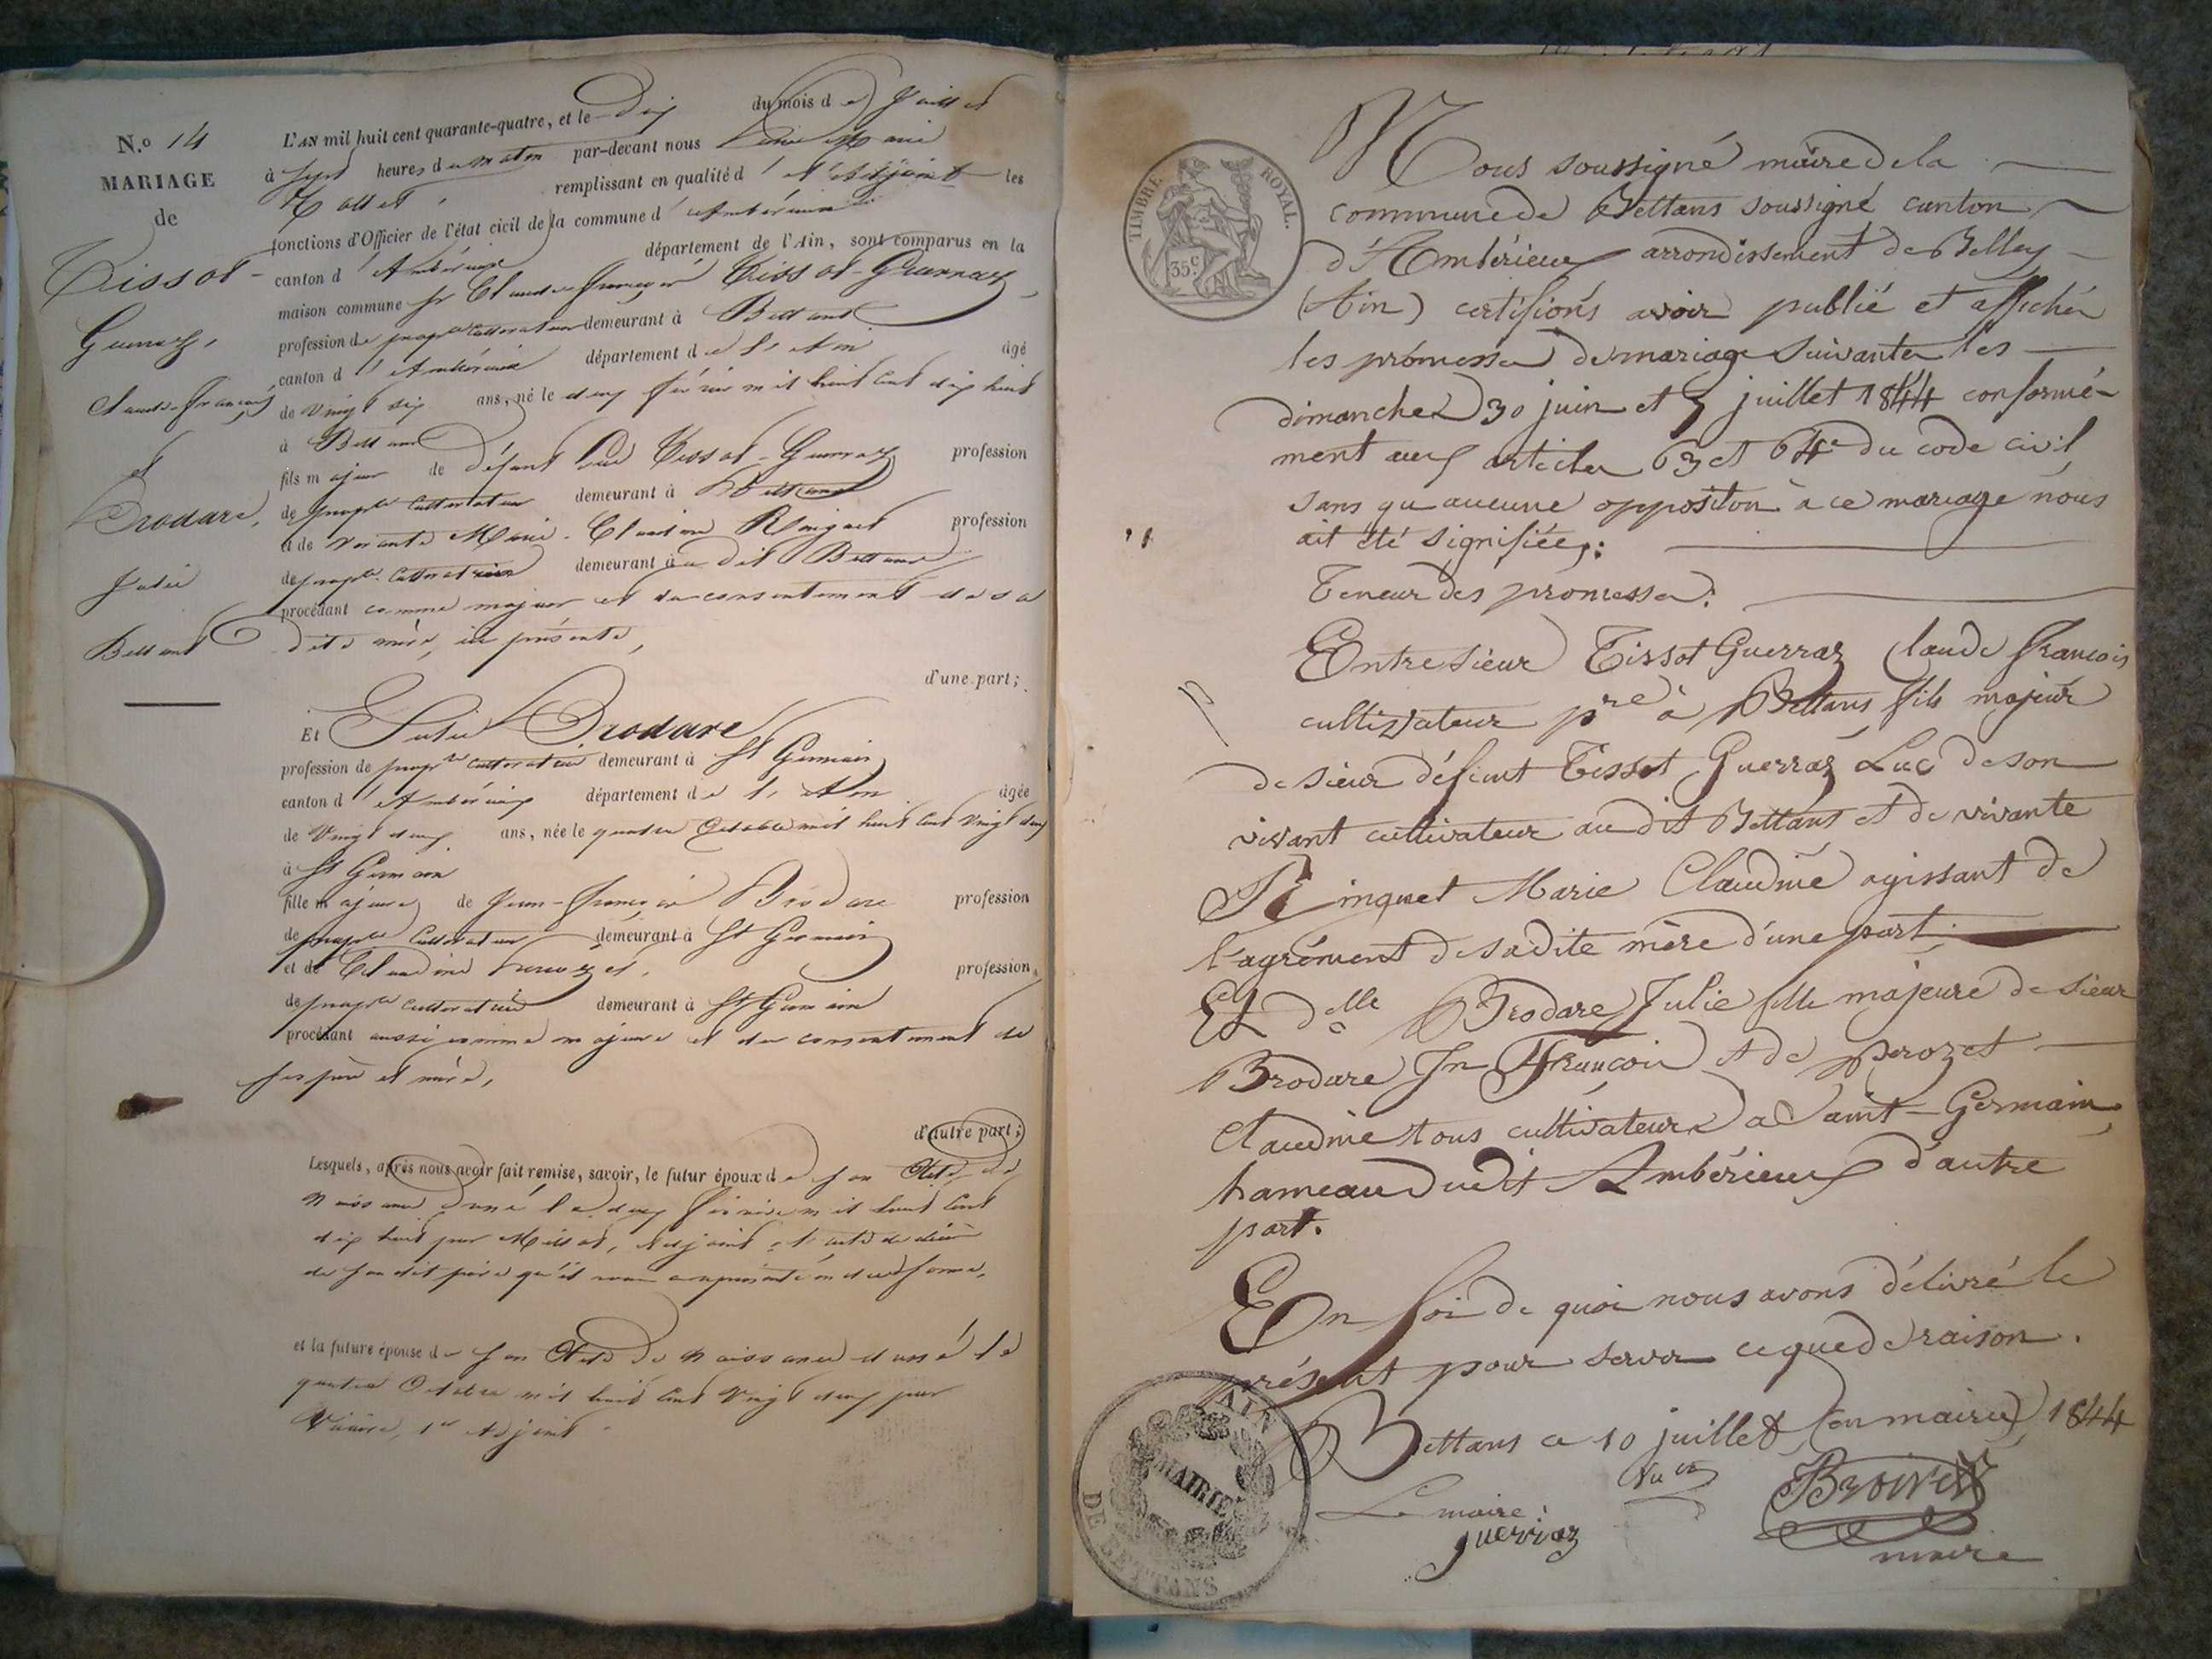 N.º 14
MARIAGE
de
Tissot-
Guerraz,
Claude-François
et
Brodare,
Julie
Bettant
L'AN mil huit cent quarante-quatre, et le dix du mois de Juillet
à sept heures du matin par-devant nous Marie
remplissant en qualité d'Adjoint les
fonctions d'Officier de l'état civil de la commune d'Ambérieux
canton d'Ambérieux département de l'Ain, sont comparus en la
maison commune Sr Claude-François Tissot-Guerraz
profession de propre Cultivateur demeurant à Bettant
canton d'Ambérieux département de l'Ain âgé
de vingt six ans, né le deux février mil huit cent dix huit
à Bettant
fils majeur de défunt Luc Tissot-Guerraz profession
de propre Cultivateur demeurant à Bettant
et de vivante Marie-Claudine Ringuet profession
de propre Cultivatrice demeurant au dit Bettant
procédant comme majeur et du consentement de sa
dite mère, ici présente,
d'une part;
Et Julie Brodare
profession de propre cultivatrice demeurant à St Germain
canton d'Ambérieux département de l'Ain âgée
de Vingt deux ans, née le quatre Octobre mil huit cent vingt deux
à St Germain
fille majeure de Jean-François Brodare profession
de propre Cultivateur demeurant à St Germain
et de Claudine profession
de propre cultivatrice demeurant à St Germain
procédant aussi comme majeure et du consentement de
ses père et mère,
d'autre part;
Lesquels, après nous avoir fait remise, savoir, le futur époux de son Acte de
naissance dressé le deux février mil huit cent
dix huit par Adjoint, l'acte de décès
de son dit père qu'il nous a représenté en due forme,
et la future épouse de son Acte de Naissance dressé le
quatre Octobre mil huit cent Vingt deux par
1er Adjoint
TIMBRE ROYAL.
35c
Nous soussigné maire de la
commune de Bettans soussigné canton
d'Ambérieux arrondissement de Belley
(Ain) certifions avoir publié et affiché
les promesses de mariage suivantes les
dimanches 30 juin et 7 juillet 1844 conformé-
ment aux articles 63 et 64e du code civil
sans qu aucune oppositon à ce mariage nous
ait été signifiée;:
Teneur des promesses:
Entre sieur Tissot Guerraz Claude François
cultivateur pre à Bettans fils majeur
de sieur défunt Tissot Guerraz Luc de son
vivant cultivateur au dit Bettans et de vivante
Ringuet Marie Claudine agissant de
l'agrément de sadite mère d'une part.
Et delle Brodare Julie fille majeure de sieur
Brodare Jn François et de perozet
Claudine tous cultivateurs à Saint-Germain,
hameau dudit Ambérieux d'autre
part.
En foi de quoi nous avons délivré le
présent pour servir ce que de raison.
Bettans ce 10 juillet (en mairie) 1844
Le maire:
guerraz
maire
AIN
MAIRIE
DE BETTANS